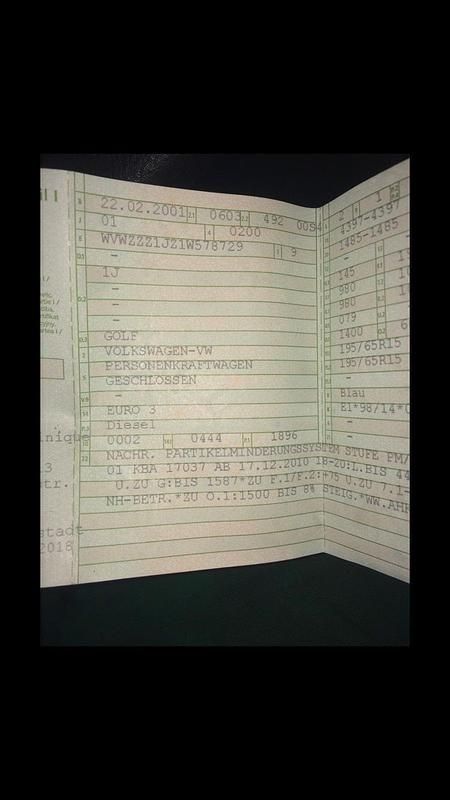 22.02.2001 0603 492
01 0200
WVWZZZ1JZ1W578729 9
–
1J
–
–
–
GOLF
VOLKSWAGEN-VW
PERSONENKRAFTWAGEN
GESCHLOSSEN
–
EURO 3
Diesel
0002 0444 1896
NACHR. PARTIKELMINDERUNGSSYSTEM STUFE PM/
01 KBA 17037 AB 17.12.2010 18-ZU:L.BIS 44
0.ZU G:BIS 1587*ZU F.1/F.2:+75 U.ZU 7.1-
NH-BETR.*ZU O.1:1500 BIS 8% STEIG.*WW.AHK
2 1
4397-4397
1485-1485
–
145
980
980
079
1400
195/65R15
195/65R15
–
Blau
E1*98/14*0
–
–
stadt
2018